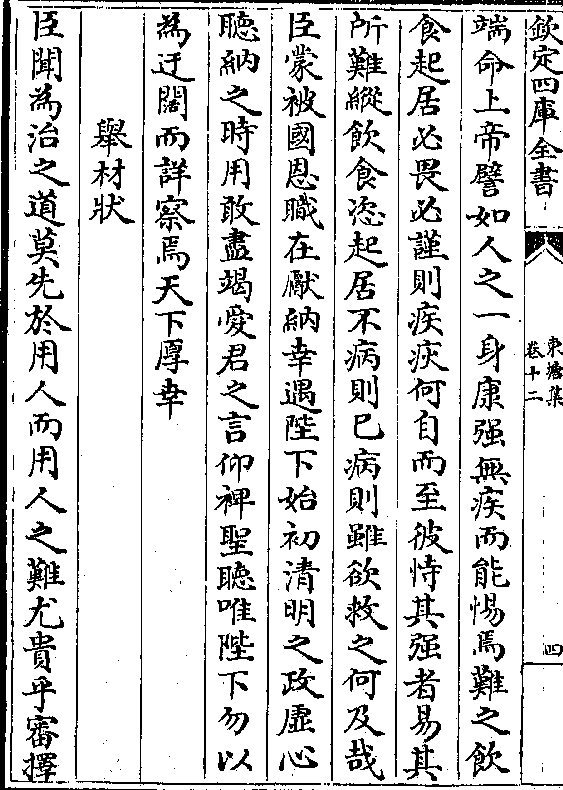 欽定四庫全書
東塘集
卷十二
四
端命上帝譬如人之一身康强無疾而能惕焉難之飲
食起居必畏必謹則疾疢何自而至彼恃其强者易其
所難縱飲食恣起居不病則已病則雖欲救之何及哉
臣蒙被國恩職在獻納幸遇陛下始初清明之政虛心
聽納之時用敢盡竭愛君之言仰裨聖聽唯陛下勿以
為迂闊而詳察焉天下厚幸
舉材狀
臣聞為治之道莫先於用人而用人之難尤貴乎審擇